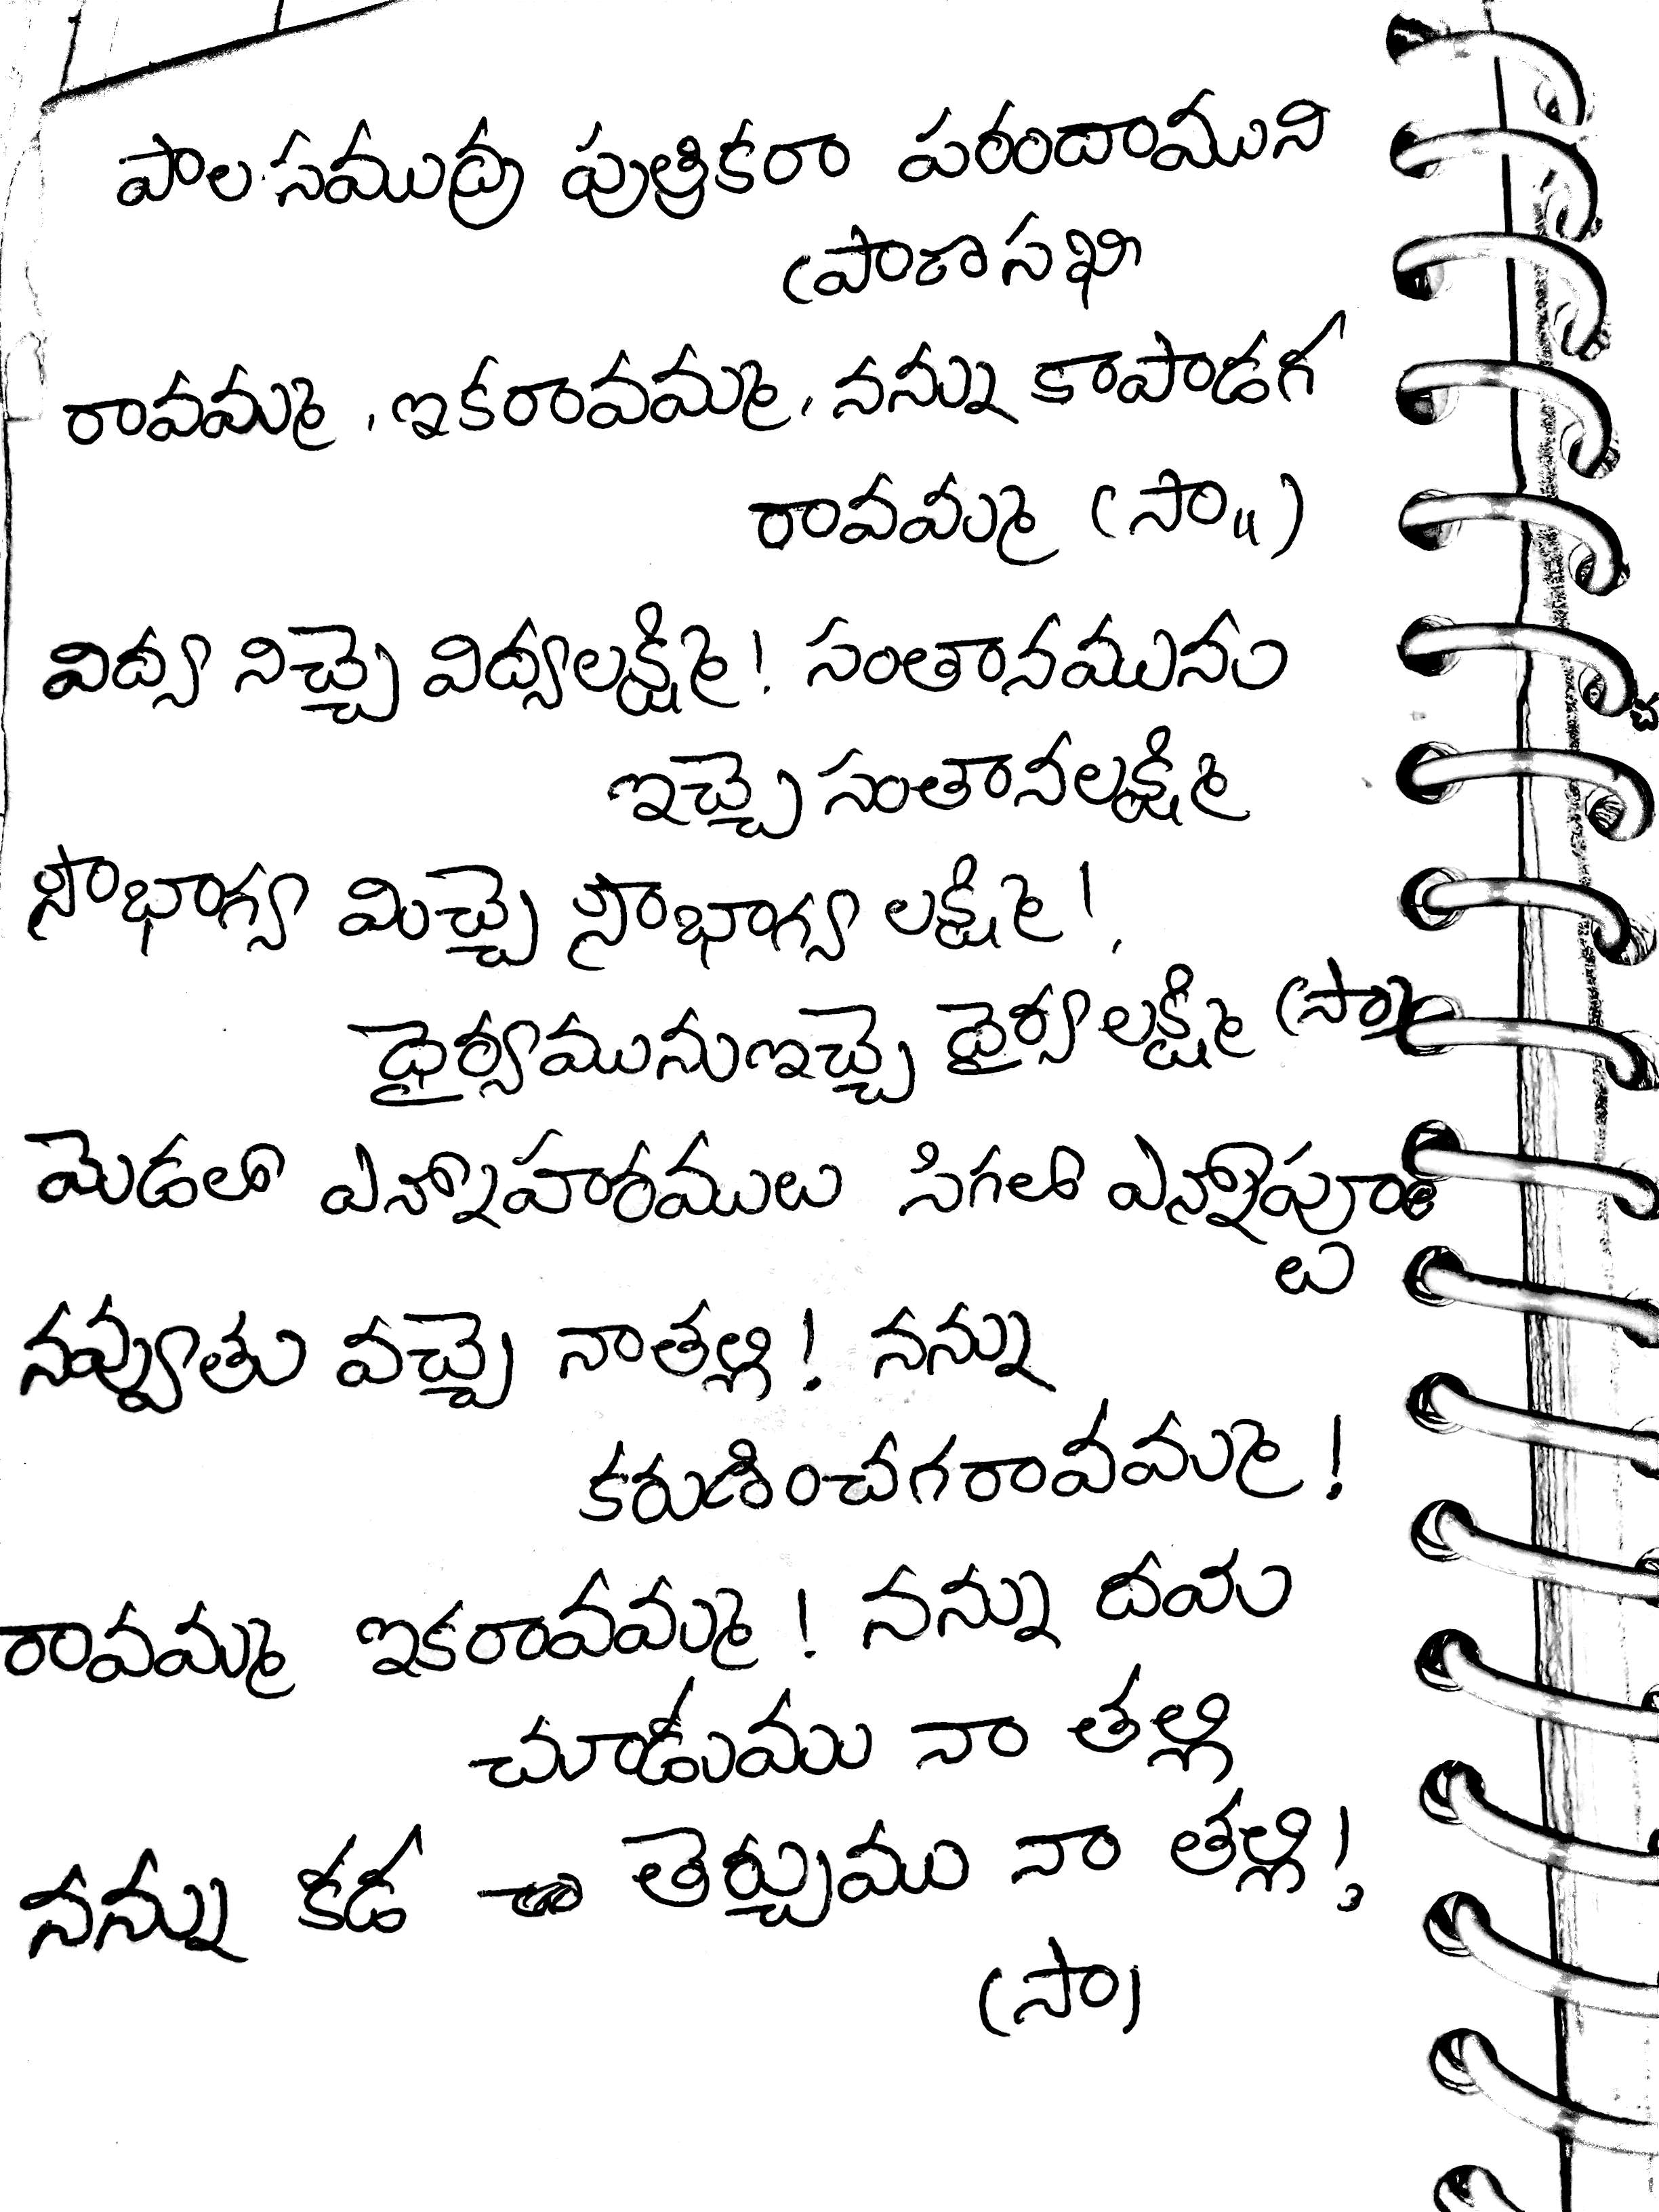 పాల సముద్ర పుత్రికరా పరందాముని
ప్రాణ సఖి
రావమ్మ, ఇకరావమ్మ, నన్ను కాపాడగ
రావమ్మ (సా॥)
విద్య నిచ్చె విద్యలక్ష్మి! సంతానమును
ఇచ్చె సంతానలక్ష్మి
సౌభాగ్య మిచ్చె సౌభాగ్య లక్ష్మి!
ధైర్యమునుఇచ్చె ధైర్యలక్ష్మి (సా)
మెడలో ఎన్నోహారములు సిగలో ఎన్నోపూ
లు
నవ్వుతు వచ్చె నాతల్లి! నన్ను
కరుణించగరావమ్మ!
రావమ్మ ఇకరావమ్మ! నన్ను దయ
చూడుము నా తల్లి
నన్ను కడ తెర్చుము నా తల్లి!
(సా)